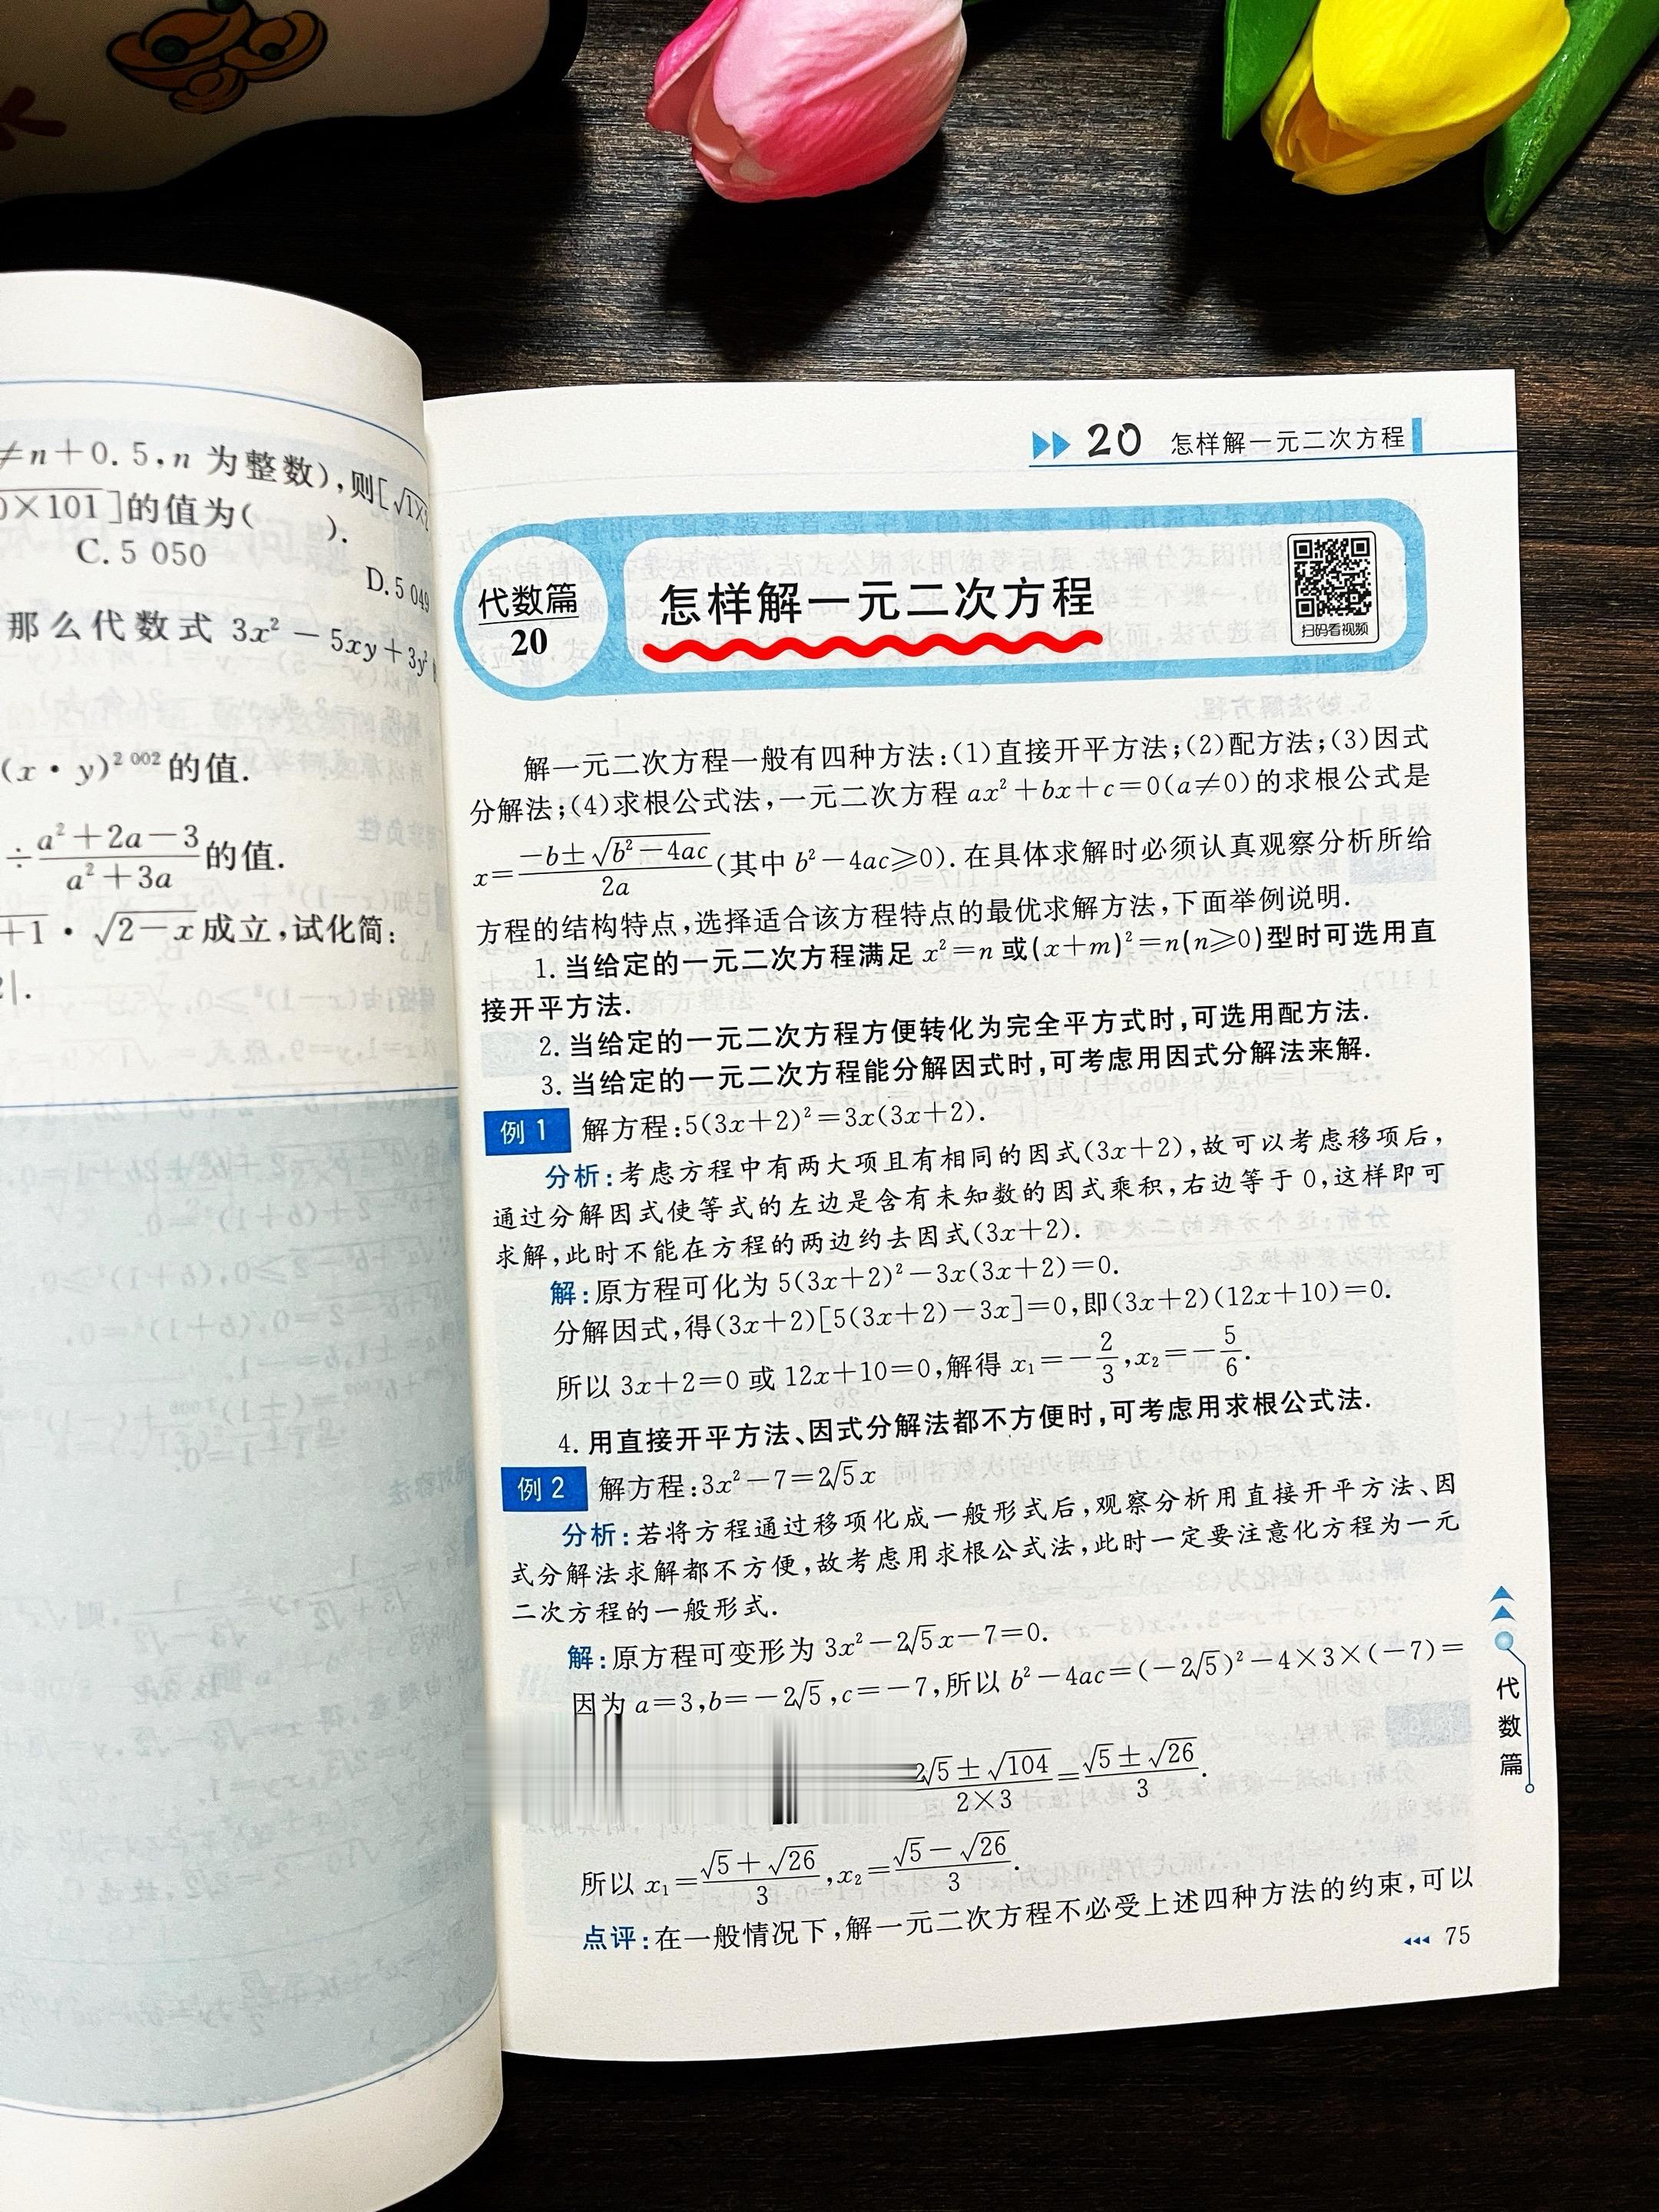 ≠n+0.5,n 为整数),则[√1×
0×101]的值为( ).
C.5 050
D.5 049
那么代数式 3x²-5xy+3y²
(x·y)²⁰⁰²的值.
÷(a²+2a-3)/(a²+3a)的值.
+1·√(2-x)成立,试化简:
|.
20 怎样解一元二次方程
代数篇
20
怎样解一元二次方程
扫码看视频
解一元二次方程一般有四种方法:(1)直接开平方法;(2)配方法;(3)因式
分解法;(4)求根公式法,一元二次方程 ax²+bx+c=0(a≠0)的求根公式是
x=(-b±√(b²-4ac))/(2a)(其中 b²-4ac≥0).在具体求解时必须认真观察分析所给
方程的结构特点,选择适合该方程特点的最优求解方法,下面举例说明.
1.当给定的一元二次方程满足 x²=n 或(x+m)²=n(n≥0)型时可选用直
接开平方法.
2.当给定的一元二次方程方便转化为完全平方式时,可选用配方法.
3.当给定的一元二次方程能分解因式时,可考虑用因式分解法来解.
例 1 解方程:5(3x+2)²=3x(3x+2).
分析:考虑方程中有两大项且有相同的因式(3x+2),故可以考虑移项后,
通过分解因式使等式的左边是含有未知数的因式乘积,右边等于 0,这样即可
求解,此时不能在方程的两边约去因式(3x+2).
解:原方程可化为 5(3x+2)²-3x(3x+2)=0.
分解因式,得(3x+2)[5(3x+2)-3x]=0,即(3x+2)(12x+10)=0.
所以 3x+2=0 或 12x+10=0,解得 x₁=-2/3,x₂=-5/6.
4.用直接开平方法、因式分解法都不方便时,可考虑用求根公式法.
例 2 解方程:3x²-7=2√5x
分析:若将方程通过移项化成一般形式后,观察分析用直接开平方法、因
式分解法求解都不方便,故考虑用求根公式法,此时一定要注意化方程为一元
二次方程的一般形式.
解:原方程可变形为 3x²-2√5x-7=0.
因为 a=3,b=-2√5,c=-7,所以 b²-4ac=(-2√5)²-4×3×(-7)=
(2√5±√104)/(2×3)=(√5±√26)/3.
所以 x₁=(√5+√26)/3,x₂=(√5-√26)/3.
点评:在一般情况下,解一元二次方程不必受上述四种方法的约束,可以
代数篇
75